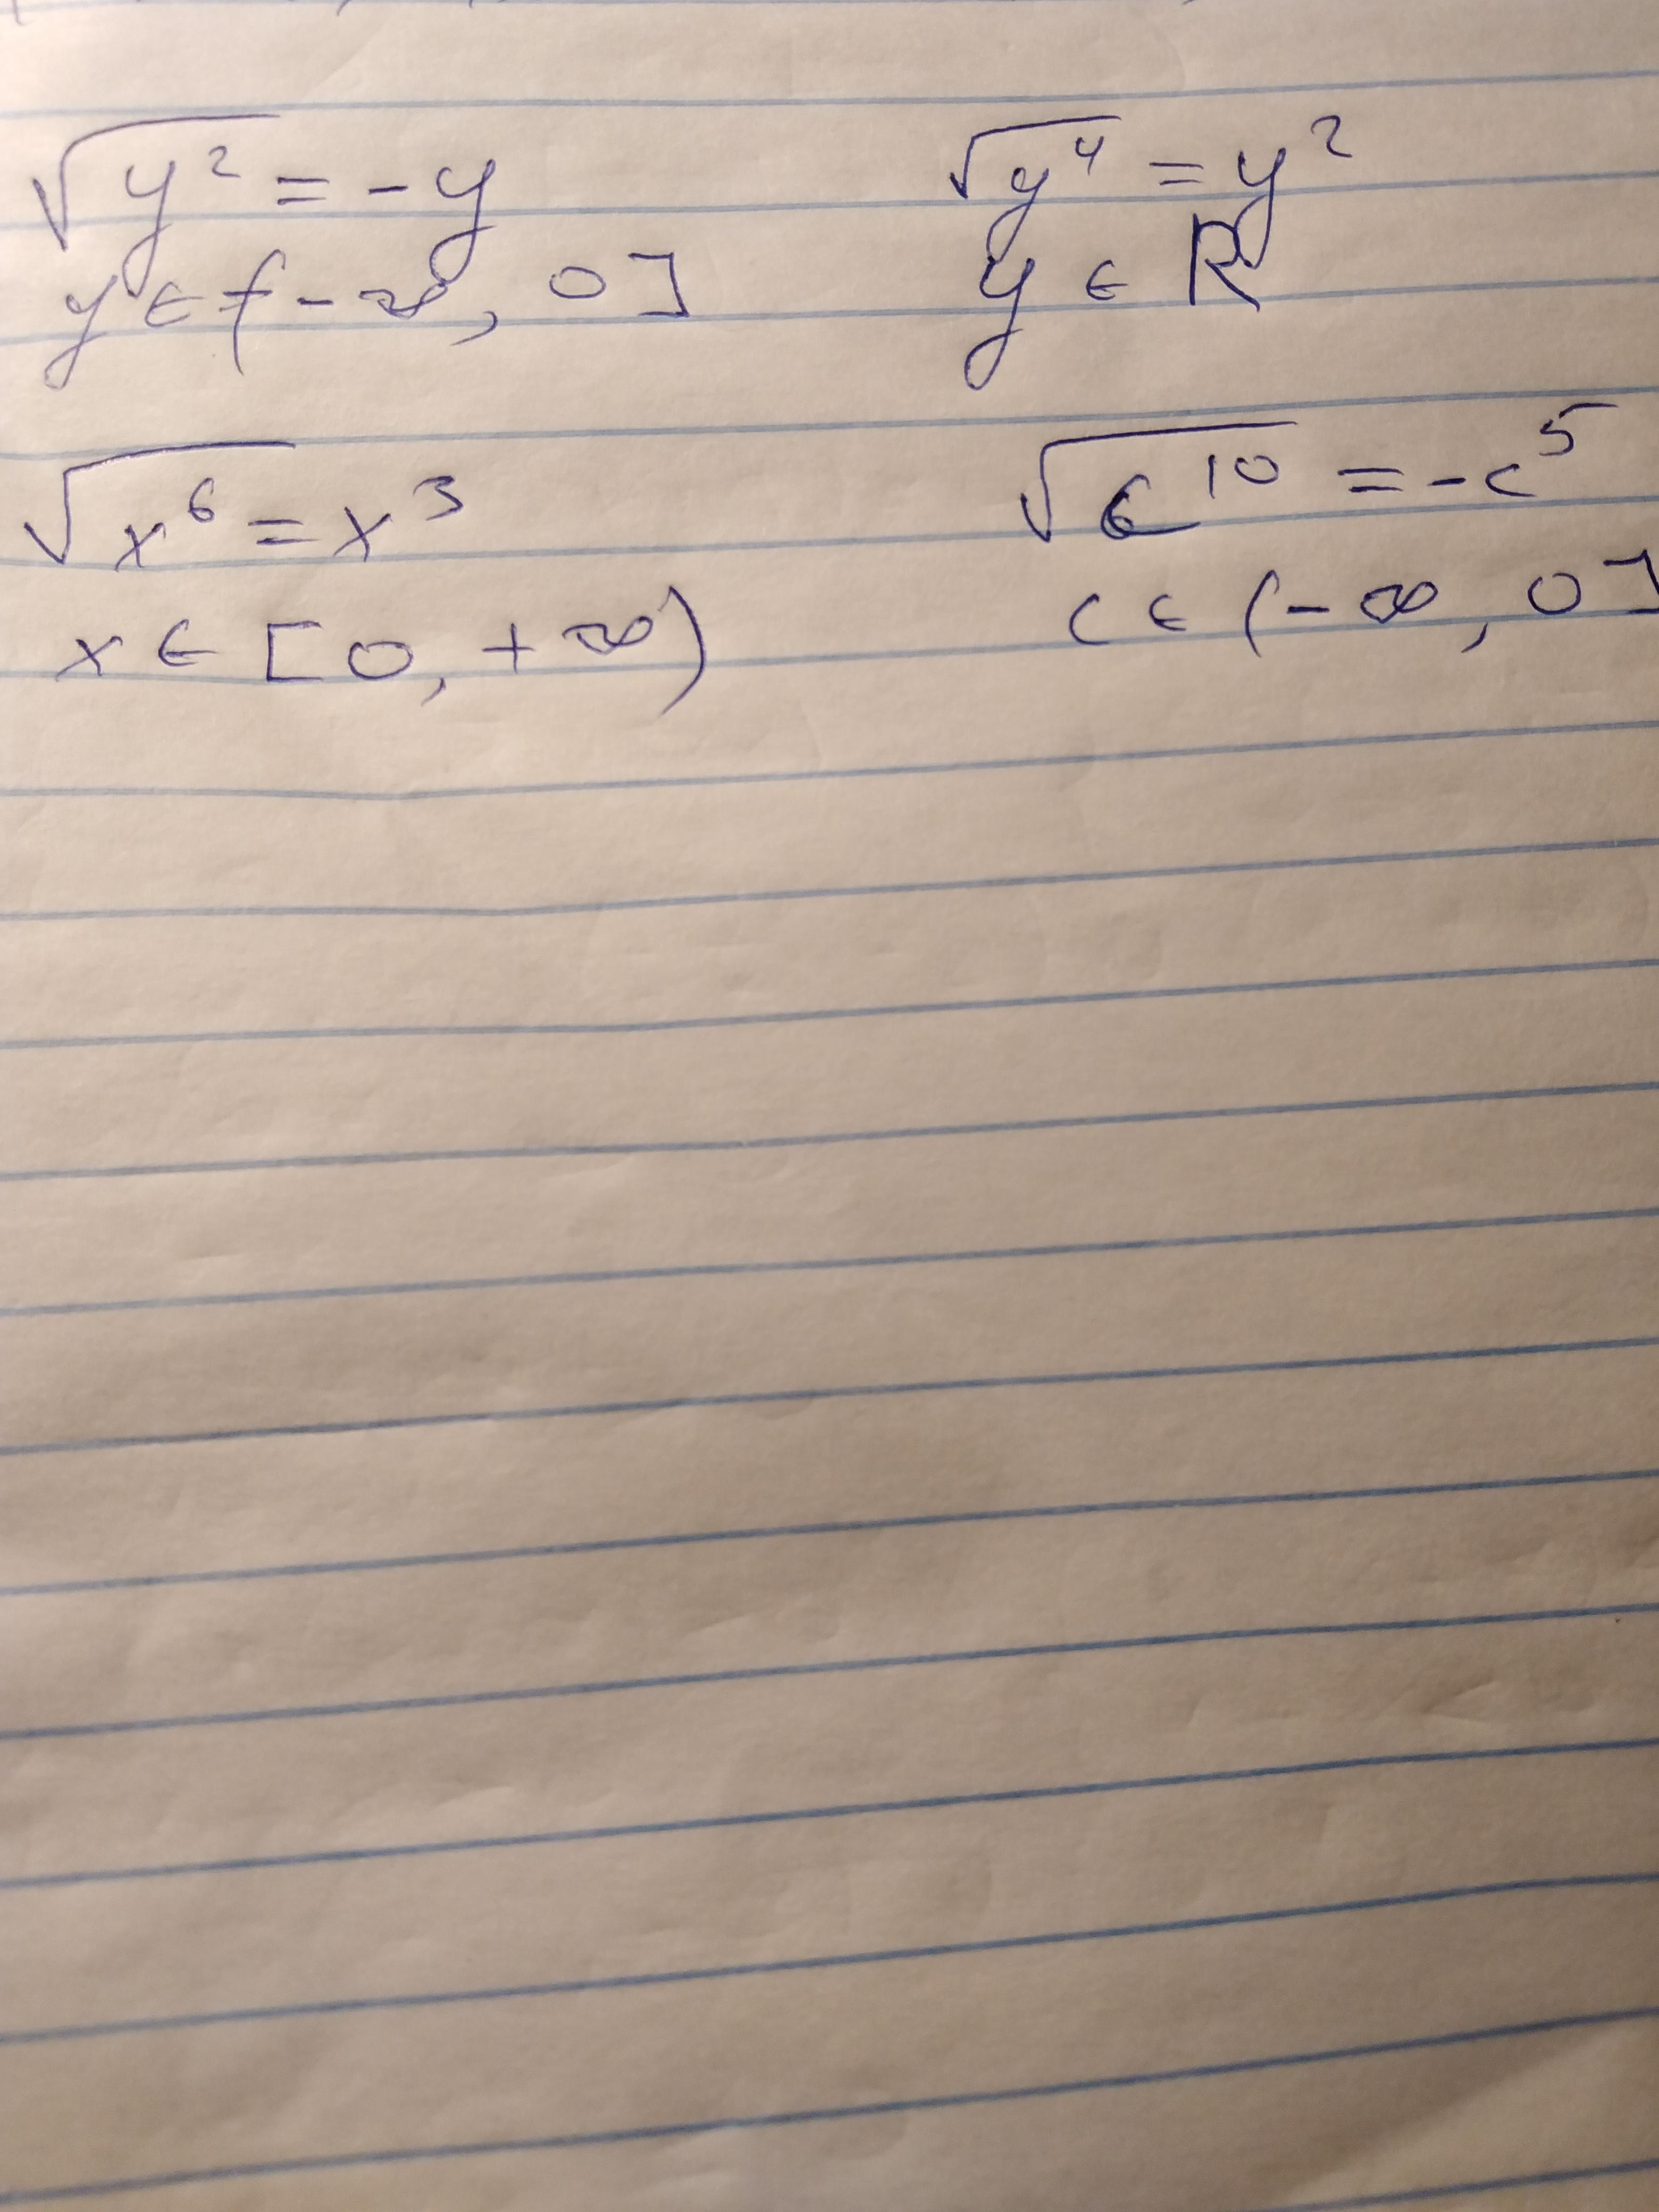 √y² = -y
y ∈ (-∞, 0]
√y⁴ = y²
y ∈ R
√x⁶ = x³
x ∈ [0, +∞)
√c¹⁰ = -c⁵
c ∈ (-∞, 0]